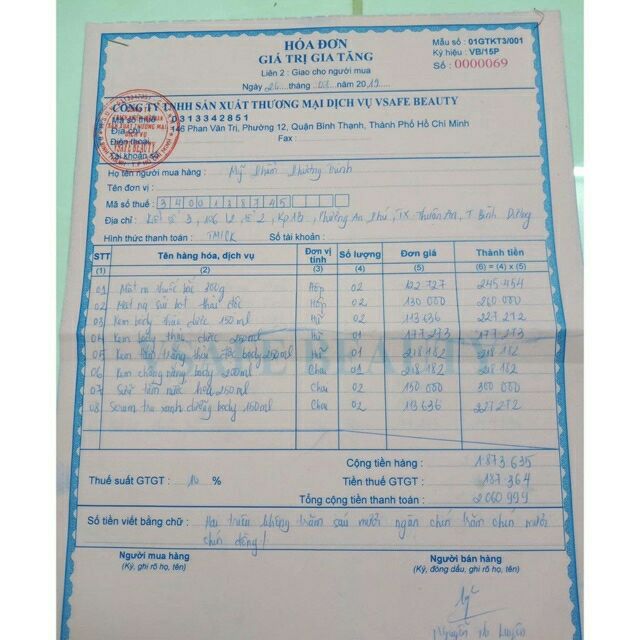 HÓA ĐƠN
GIÁ TRỊ GIA TĂNG
Liên 2 : Giao cho người mua
Ngày 26 tháng 03 năm 2019
Mẫu số : 01GTKT3/001
Ký hiệu : VB/15P
Số : 0000069
CÔNG TY TNHH SẢN XUẤT THƯƠNG MẠI DỊCH VỤ VSAFE BEAUTY
Mã số thuế : 0313342851
Địa chỉ : 146 Phan Văn Trị, Phường 12, Quận Bình Thạnh, Thành Phố Hồ Chí Minh
Điện thoại Fax :
Tài khoản số :
Họ tên người mua hàng : Mỹ Phẩm Phương Trinh
Tên đơn vị :
Mã số thuế : 3400188745
Địa chỉ : 3, 106 Kp1B, Phường An Phú, TX Thuận An, T. Bình Dương
Hình thức thanh toán : TM/CK Số tài khoản :
STT Tên hàng hóa, dịch vụ Đơn vị tính Số lượng Đơn giá Thành tiền
(1) (2) (3) (4) (5) (6) = (4) x (5)
01 Mặt nạ thuốc bắc 300g Hộp 02 122 727 245 454
02 Mặt nạ sủi bọt thải độc Hộp 02 130 000 260 000
03 Kem body thảo dược 150ml Hũ 02 113 636 227 272
04 Kem body thảo dược 250ml Hũ 01 177 273 177 273
05 Kem trắng body 250ml Hũ 01 218 182 218 182
06 Kem chống nắng body 200ml Chai 01 218 182 218 182
07 Sữt tắm nước 250ml Chai 02 150 000 300 000
08 Serum tra xanh dưỡng body 150ml Chai 02 113 636 227 272
SAFE BEAUTY
Cộng tiền hàng : 1 873 635
Thuế suất GTGT : 10 % Tiền thuế GTGT : 187 364
Tổng cộng tiền thanh toán : 2 060 999
Số tiền viết bằng chữ : Hai triệu không trăm sáu mươi ngàn chín trăm chín mươi
chín đồng!
Người mua hàng Người bán hàng
(Ký, ghi rõ họ, tên) (Ký, đóng dấu, ghi rõ họ, tên)
Nguyễn